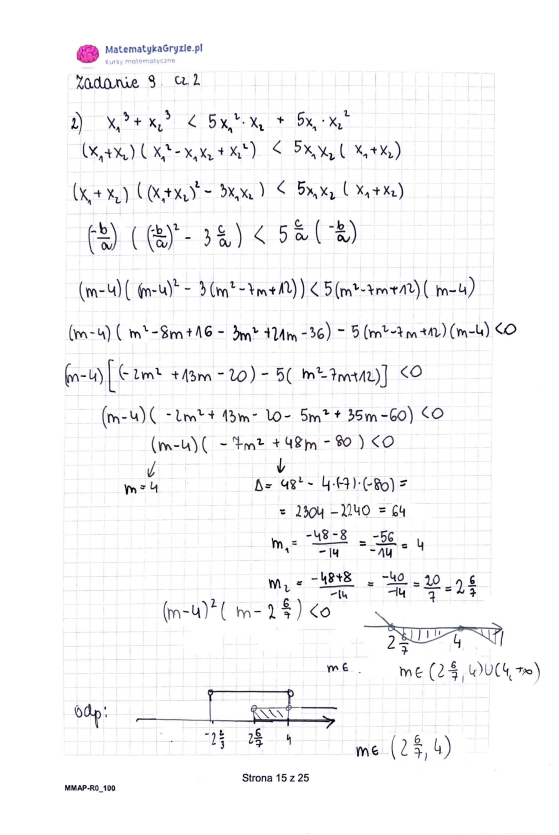 MatematykaGryzie.pl
Kursy matematyczne
Zadanie 9 cz 2
2) x₁³ + x₂³ < 5x₁²·x₂ + 5x₁·x₂²
(x₁+x₂)(x₁²-x₁x₂+x₂²) < 5x₁x₂(x₁+x₂)
(x₁+x₂)((x₁+x₂)²-3x₁x₂) < 5x₁x₂(x₁+x₂)
(-b/a)((-b/a)²-3c/a) < 5c/a(-b/a)
(m-4)((m-4)²-3(m²-7m+12)) < 5(m²-7m+12)(m-4)
(m-4)(m²-8m+16-3m²+21m-36)-5(m²-7m+12)(m-4)<0
(m-4)[(-2m²+13m-20)-5(m²-7m+12)] <0
(m-4)(-2m²+13m-20-5m²+35m-60)<0
(m-4)(-7m²+48m-80)<0
m=4 Δ= 48²-4·(-7)·(-80)=
= 2304-2240 = 64
m₁ = -48-8/-14 = -56/-14 = 4
m₂ = -48+8/-14 = -40/-14 = 20/7 = 2 6/7
(m-4)²(m-2 6/7)<0
2 6/7 4
m∈. m∈(2 6/7, 4)∪(4, +∞)
odp:
-2 2/3 2 6/7 4
m∈ (2 6/7, 4)
Strona 15 z 25
MMAP-R0_100